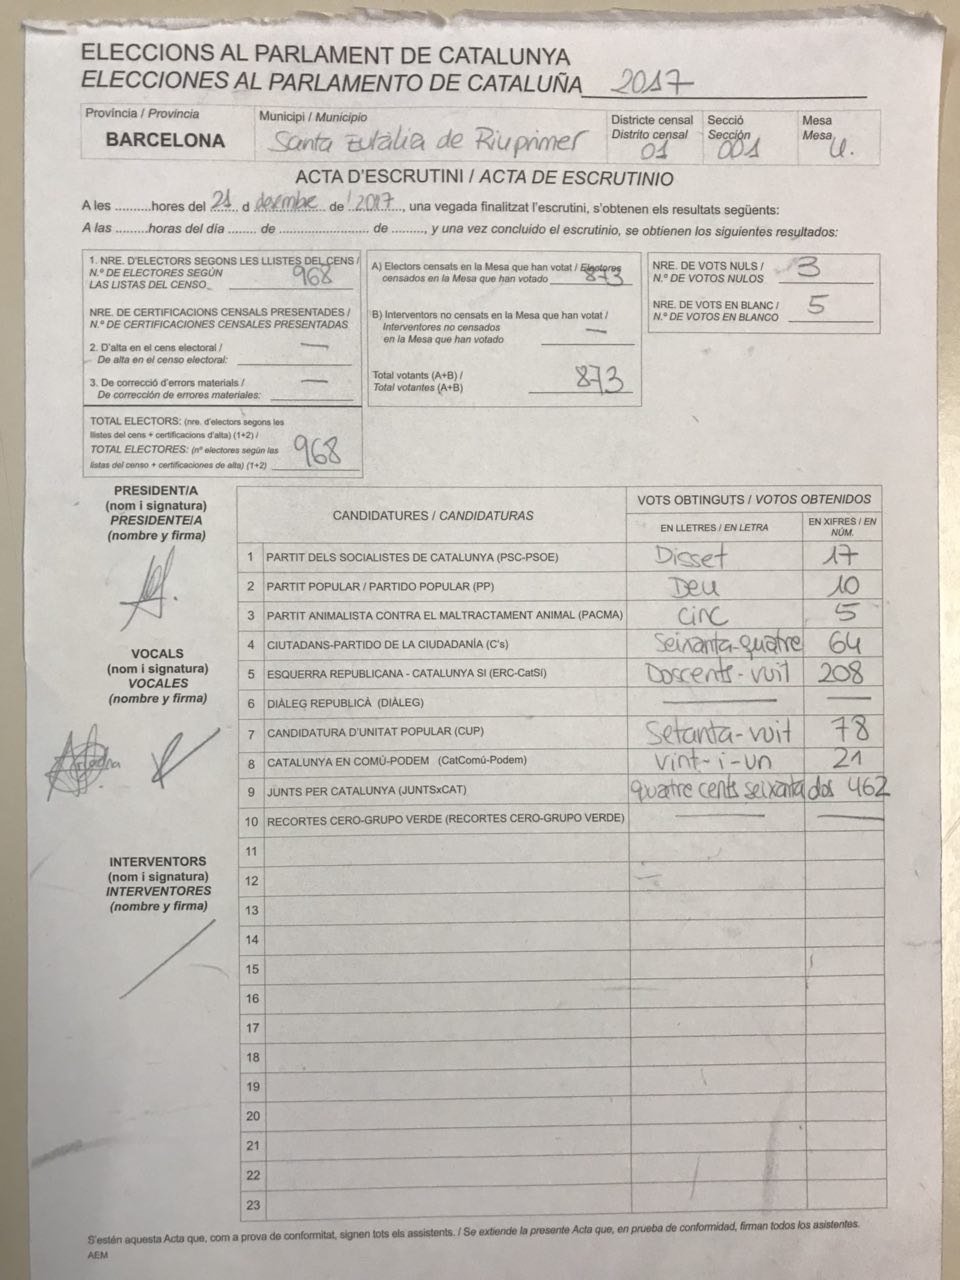 ELECCIONS AL PARLAMENT DE CATALUNYA
ELECCIONES AL PARLAMENTO DE CATALUÑA 2017
Província / Provincia
BARCELONA
Municipi / Municipio
Santa Eulàlia de Riuprimer
Districte censal
Distrito censal
01
Secció
Sección
001
Mesa
Mesa
U.
ACTA D'ESCRUTINI / ACTA DE ESCRUTINIO
A les ..........hores del 21 d desembre de 2017, una vegada finalitzat l'escrutini, s'obtenen els resultats següents:
A las .........horas del día ........ de ......................... de ........., y una vez concluido el escrutinio, se obtienen los siguientes resultados:
1. NRE. D'ELECTORS SEGONS LES LLISTES DEL CENS /
N.º DE ELECTORES SEGÚN
LAS LISTAS DEL CENSO 968
NRE. DE CERTIFICACIONS CENSALS PRESENTADES /
N.º DE CERTIFICACIONES CENSALES PRESENTADAS
2. D'alta en el cens electoral / —
De alta en el censo electoral:
3. De correcció d'errors materials / —
De corrección de errores materiales:
TOTAL ELECTORS: (nre. d'electors segons les
llistes del cens + certificacions d'alta) (1+2) /
TOTAL ELECTORES: (nº electores según las
listas del censo + certificaciones de alta) (1+2) 968
A) Electors censats en la Mesa que han votat / Electores
censados en la Mesa que han votado 873
B) Interventors no censats en la Mesa que han votat /
Interventores no censados
en la Mesa que han votado —
Total votants (A+B) /
Total votantes (A+B) 873
NRE. DE VOTS NULS / 3
N.º DE VOTOS NULOS
NRE. DE VOTS EN BLANC / 5
N.º DE VOTOS EN BLANCO
PRESIDENT/A
(nom i signatura)
PRESIDENTE/A
(nombre y firma)
VOCALS
(nom i signatura)
VOCALES
(nombre y firma)
Ariadna
INTERVENTORS
(nom i signatura)
INTERVENTORES
(nombre y firma)
CANDIDATURES / CANDIDATURAS
VOTS OBTINGUTS / VOTOS OBTENIDOS
EN LLETRES / EN LETRA
EN XIFRES / EN
NÚM.
1 PARTIT DELS SOCIALISTES DE CATALUNYA (PSC-PSOE) Disset 17
2 PARTIT POPULAR / PARTIDO POPULAR (PP) Deu 10
3 PARTIT ANIMALISTA CONTRA EL MALTRACTAMENT ANIMAL (PACMA) Cinc 5
4 CIUTADANS-PARTIDO DE LA CIUDADANÍA (C's) Seixanta-quatre 64
5 ESQUERRA REPUBLICANA - CATALUNYA SI (ERC-CatSí) Doscents-vuit 208
6 DIÀLEG REPUBLICÀ (DIÀLEG) — —
7 CANDIDATURA D'UNITAT POPULAR (CUP) Setanta-vuit 78
8 CATALUNYA EN COMÚ-PODEM (CatComú-Podem) Vint-i-un 21
9 JUNTS PER CATALUNYA (JUNTSxCAT) quatre cents seixanta dos 462
10 RECORTES CERO-GRUPO VERDE (RECORTES CERO-GRUPO VERDE) — —
11
12
13
14
15
16
17
18
19
20
21
22
23
S'estén aquesta Acta que, com a prova de conformitat, signen tots els assistents. / Se extiende la presente Acta que, en prueba de conformidad, firman todos los asistentes.
AEM